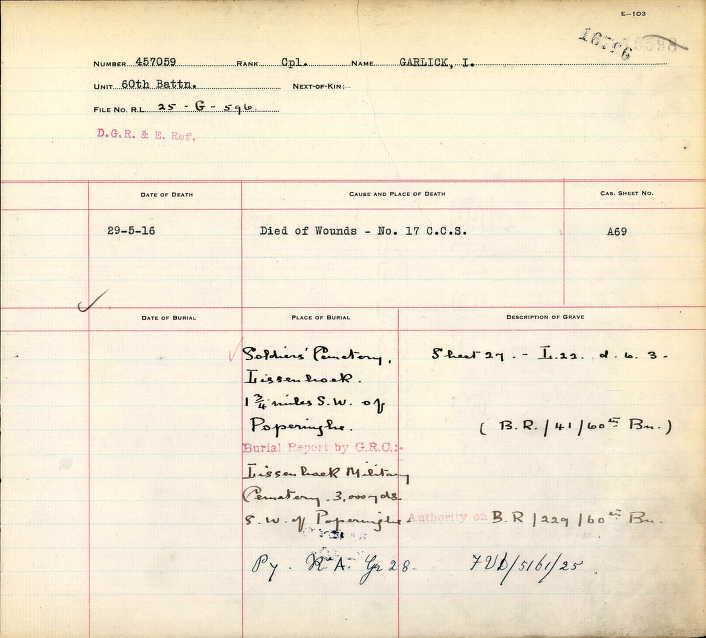 E-103
16796
NUMBER 457059 RANK Cpl. NAME GARLICK, I.
UNIT 60th Battn. NEXT-OF-KIN:-
FILE No. R.L. 25 - G - 596.
D.G.R. & E. Ref.
DATE OF DEATH CAUSE AND PLACE OF DEATH CAS. SHEET NO.
29-5-16 Died of Wounds - No. 17 C.C.S. A69
DATE OF BURIAL PLACE OF BURIAL DESCRIPTION OF GRAVE
Soldiers' Cemetery, Sheet 27. - L.22. d. 6. 3.
Lissenhoek.
1 3/4 miles S.W. of
Poperinghe. ( B.R. / 41 / 60th Bn. )
Burial Report by G.R.C.:-
Lissenhoek Military
Cemetery. 3,000 yds.
S.W. of Poperinghe. Authority on B.R / 229 / 60th Bn.
A. Gr 28. /5161/25